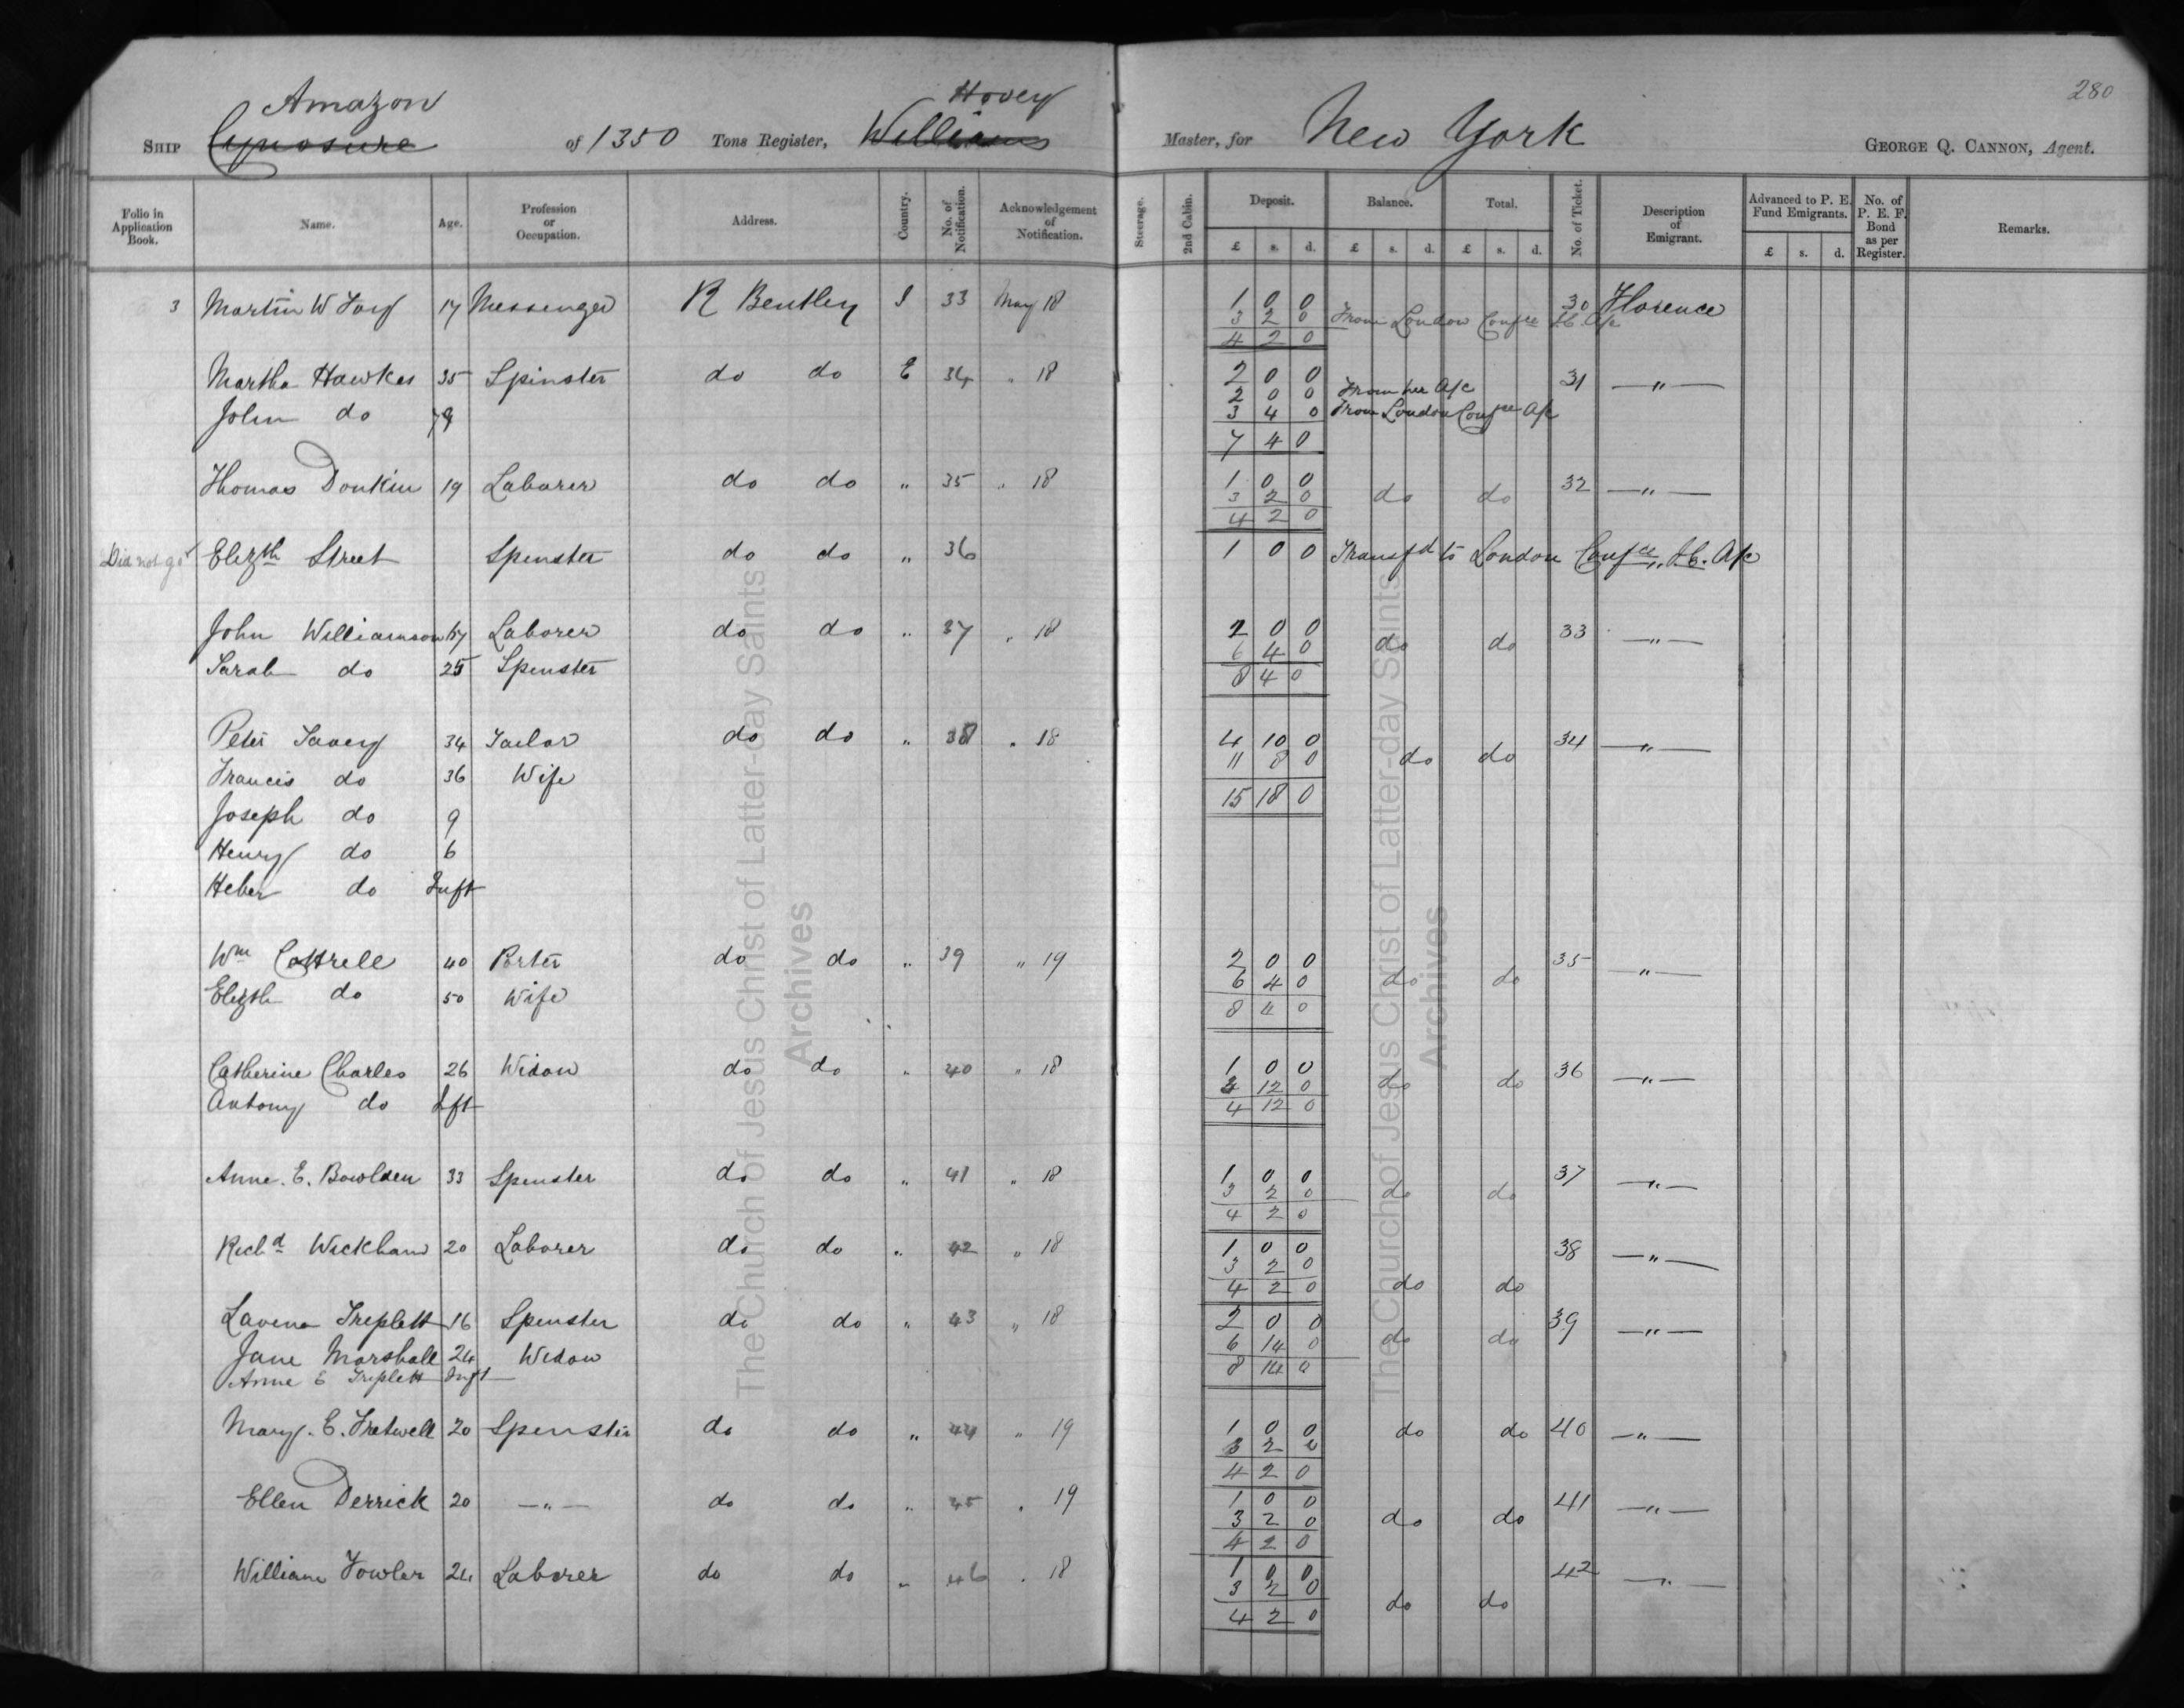 280
Amazon Hovey
SHIP Cynosure of 1350 Tons Register, Williams Master, for New York GEORGE Q. CANNON, Agent.
Folio in Application Book. Name. Age. Profession or Occupation. Address. Country. No. of Notification. Acknowledgement of Notification. Steerage. 2nd Cabin. Deposit. Balance. Total. No. of Ticket. Description of Emigrant. Advanced to P. E. Fund Emigrants. No. of P. E. F. Bond as per Register. Remarks.
£ s. d. £ s. d. £ s. d. £ s. d.
3 Martin W 17 Messenger R Bentley 33 May 18 1 0 0 30 Florence
3 2 0 From London Confce
4 2 0
Martha Hawkes 35 Spinster do do E 34 " 18 2 0 0 31 —"—
2 0 0 From her A/c
John do 3 4 0 From London Confce A/c
7 4 0
Thomas Donkin 19 Laborer do do " 35 " 18 1 0 0 32 —"—
3 2 0 do do
4 2 0
Did not go Elizth Street Spenster do do " 36 1 0 0 Transfd to London Confce A/c
John Williamson Laborer do do " 37 " 18 2 0 0 33 —"—
6 4 0 do do
Sarah do 25 Spenster 8 4 0
Peter Savery 34 Tailor do do " 38 " 18 4 10 0 34 —"—
11 8 0 do do
Francis do 36 Wife
15 18 0
Joseph do 9
Henry do 6
Heber do Inft
Wm Cottrell 40 Porter do do " 39 " 19 2 0 0 35 —"—
6 4 0 do do
Elizth do 50 Wife
8 4 0
Catherine Charles 26 Widow do do " 40 " 18 1 0 0 36 —"—
12 0 do do
Antony do Ift 4 12 0
Anne. E. Bowlden 33 Spenster do do " 41 " 18 1 0 0 37 —"—
3 2 0 do do
4 2 0
Richd Wickham 20 Laborer do do " 42 " 18 1 0 0 38 —"—
3 2 0
4 2 0 do do
Lavena Treplett 16 Spenster do do " 43 " 18 2 0 0 39 —"—
6 14 0 do do
Jane Marshall 24 Widow
8 14 0
Anne E Treplett Inft
Mary. E. Fretwell 20 Spenster do do " 44 " 19 1 0 0 do do 40 —"—
3 2 0
4 2 0
Ellen Derrick 20 —"— do do " 45 " 19 1 0 0 41 —"—
3 2 0 do do
4 2 0
William Fowler 24 Laborer do do " 46 " 18 1 0 0 42 —"—
3 2 0
4 2 0 do do
The Church of Jesus Christ of Latter-day Saints
Archives
The Church of Jesus Christ of Latter-day Saints
Archives